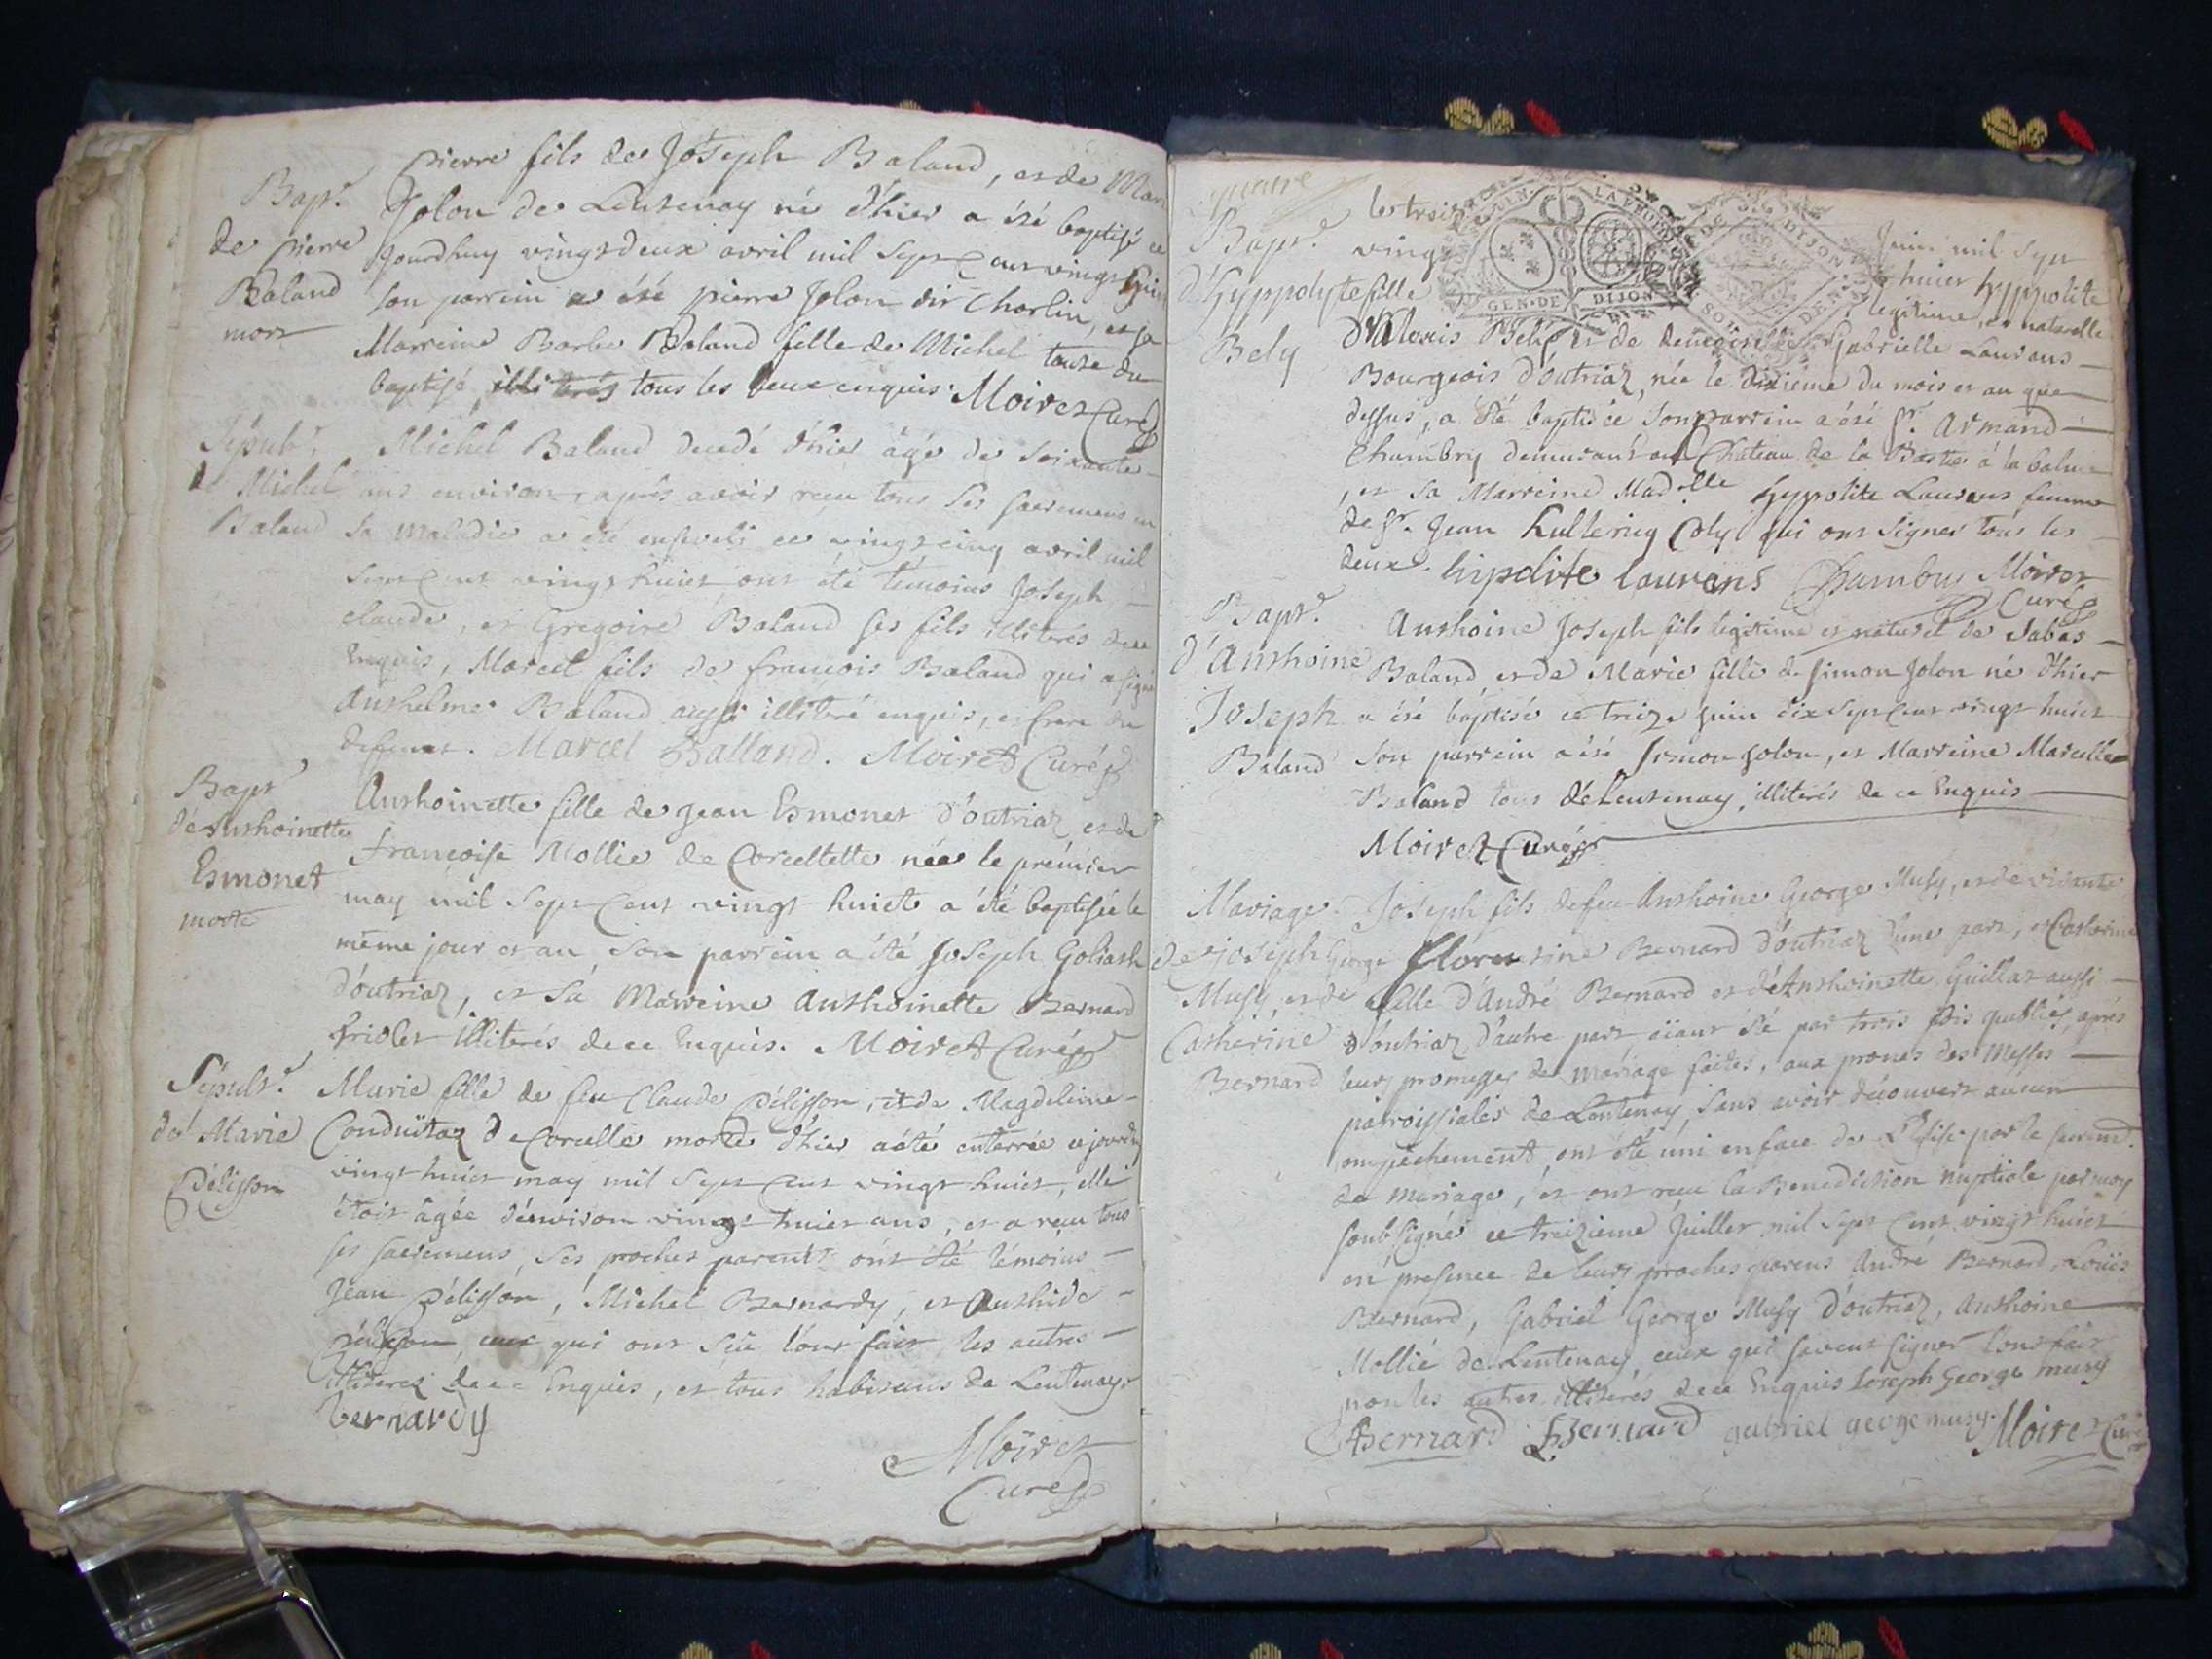 Bapt.
de Pierre
Baland
mort
Pierre fils de Joseph Baland, et de
Jolon de Lentenay né d'hier a été baptisé ce
jourdhuy vingt deux avril mil Sept Cent vingt
Son parrein a été pierre Jolon dit Charlin, et sa
Marreine Barbe Baland fille de Michel tante du
baptisé, illiterés tous les deux enquis. Moiret Curé
Sepult.
de Michel
Baland
Michel Baland decedé d'hier âgé de Soixante
ans environ, après avoir receu tous Ses Sacremens en
Sa Maladie a été enseveli ce vingt cinq avril mil
Sept Cent vingt huict, ont été témoins Joseph
claude, et Gregoire Baland ses fils illiterés de ce
Enquis, Marcel fils de françois Baland qui a signé
Anthelme Baland aussi illiteré enquis, et frere du
defunct. Marcel Balland. Moiret Curé
Bapt
d'Anthoinette
Esmonet
morte
Anthoinette fille de Jean Esmonet D'outriaz et de
françoise Mollie de Corcellette née le prémier
may mil Sept Cent vingt huict a été baptisée le
même jour et an, Son parrein a été Joseph Goliath
D'outriaz, et Sa Marreine Anthoinette Bernard
friolet illiterés de ce Enquis. Moiret Curé
Sépult.
de Marie
Pélisson
Marie fille de feu Claude Pélisson, et de Magdeleine
Conduitaz de Corcelle morte d'hier a été enterrée cejourdhuy
vingt huict may mil Sept Cent vingt huict, elle
étoit âgée d'environ vingt huict ans, et a receu tous
ses sacremens, Ses proches parents ont été témoins
Jean Pélisson, Michel Bernardy, et
Pélisson, ceux qui ont Sçu l'ont fait, les autres
illiterez de ce Enquis, et tous habitans de Lentenay
bernardy
Moiret
Curé
quatre
Bapt.
d'Hyppolyte
Bely
le treize Juin mil Sept
vingt huict hyppolite
fille legitime, et naturelle
de Louis Bely et de demoiselle Gabrielle Laurens
Bourgeois d'outriaz, née le dixiéme du mois et an que
dessus, a été baptisée Son parrein a été Sr. Armand
Chambry demeurant au Château de la Bastie à la balme
, et Sa Marreine Madelle hyppolite Laurens femme
de Sr. Jean Coly qui ont Signer tous les
deux. hipolite laurens Chambry Moiret
Curé
Bapt.
d'Anthoine
Joseph
Baland
Anthoine Joseph fils legitime et naturel de Sabas
Baland et de Marie fille de Simon Jolon né d'hier
a été baptisé ce treize Juin dix Sept Cent vingt huict
Son parrein a été Simon Jolon, et Marreine Marcelle
Baland tous de Lentenay, illiterés de ce Enquis
Moiret Curé
Mariage
de joseph George
Musy, et de
Catherine
Bernard
Joseph fils de feu Anthoine George Musy, et de vivante
Florentine Bernard d'outriaz d'une part, et Catherine
fille d'André Bernard et d'Anthoinette Guillat aussi
d'outriaz d'autre part aïant été par trois fois publiés, après
leurs promesses de mariage faites, aux prones des Messes
paroissiales de Lentenay, Sans avoir découvert aucun
empéchement, ont été uni en face de L'Eglise par le sacremt.
de mariage, et ont receu la Benediction nuptiale par moy
soubsigné ce treizieme Juillet mil Sept Cent vingt huict
en presence de leurs proches parens André Bernard, Louïs
Bernard, Gabriel George Musy d'outriaz, Anthoine
Mollié de Lentenay, ceux qui savent signer l'ont fait
non les autres illiterés de ce Enquis Joseph George musy
ABernard LBernard gabriel george musy. Moiret Curé
GEN · DE DIJON